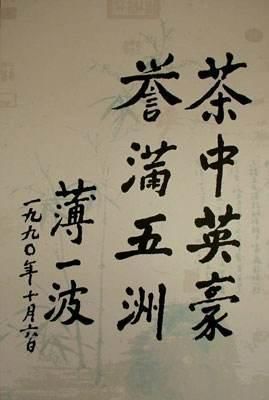 茶中英豪
誉满五洲
薄一波
一九九〇年十月六日